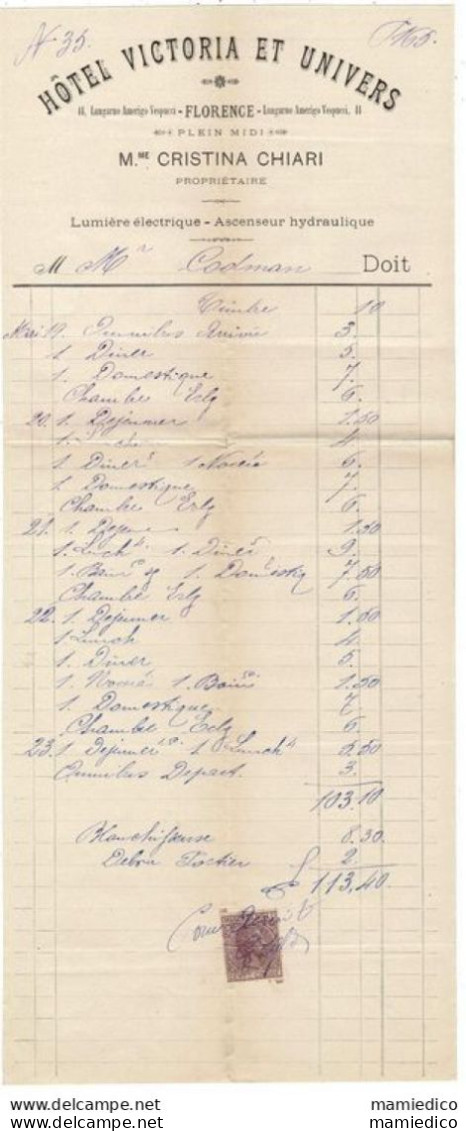 N 35.
HÔTEL VICTORIA ET UNIVERS
44, Lungarno Amerigo Vespucci - FLORENCE - Lungarno Amerigo Vespucci, 44
PLEIN MIDI
M.ME CRISTINA CHIARI
PROPRIÉTAIRE
Lumière électrique - Ascenseur hydraulique
M Mr Codman Doit
Timbre 10
19. Omnibus Arrivée 3.
1. Diner 5.
1. Domestique 7.
Chambre Eclg 6.
20. 1. Dejeuner 1.50
4
1. Diner 1 6.
1. Domestique 7.
Chambre Eclg 6.
21. 1. Dejeu 1.50
1. Lunch 4 1. Diner 5 9.
1. Bain 1. Domestiq 7.50
Chambre Eclg 6.
22. 1. Dejeuner 1.50
1 Lunch 4
1. Diner 5.
1. 1. Bain 1.50
1. Domestique 7
Chambre Eclg 6
23. 1 Dejeuner 1 Lunch 4 5.50
Omnibus Depart. 3.
103.10
Blanchisseuse 8.30
2.
113.40
mamiedico
mamiedico